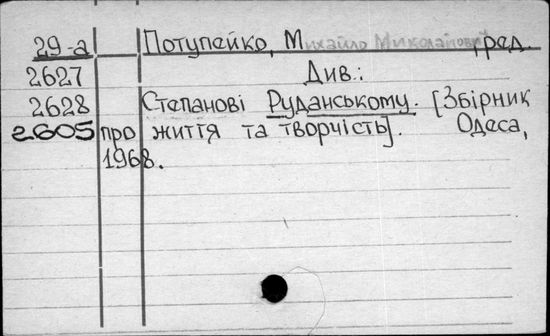 29-а Потупейко, Михайло Миколайович, ред.
2627 Див.:
2628 Степанові Руданському. [Збірник
2605 про життя та творчість]. Одеса,
1968.